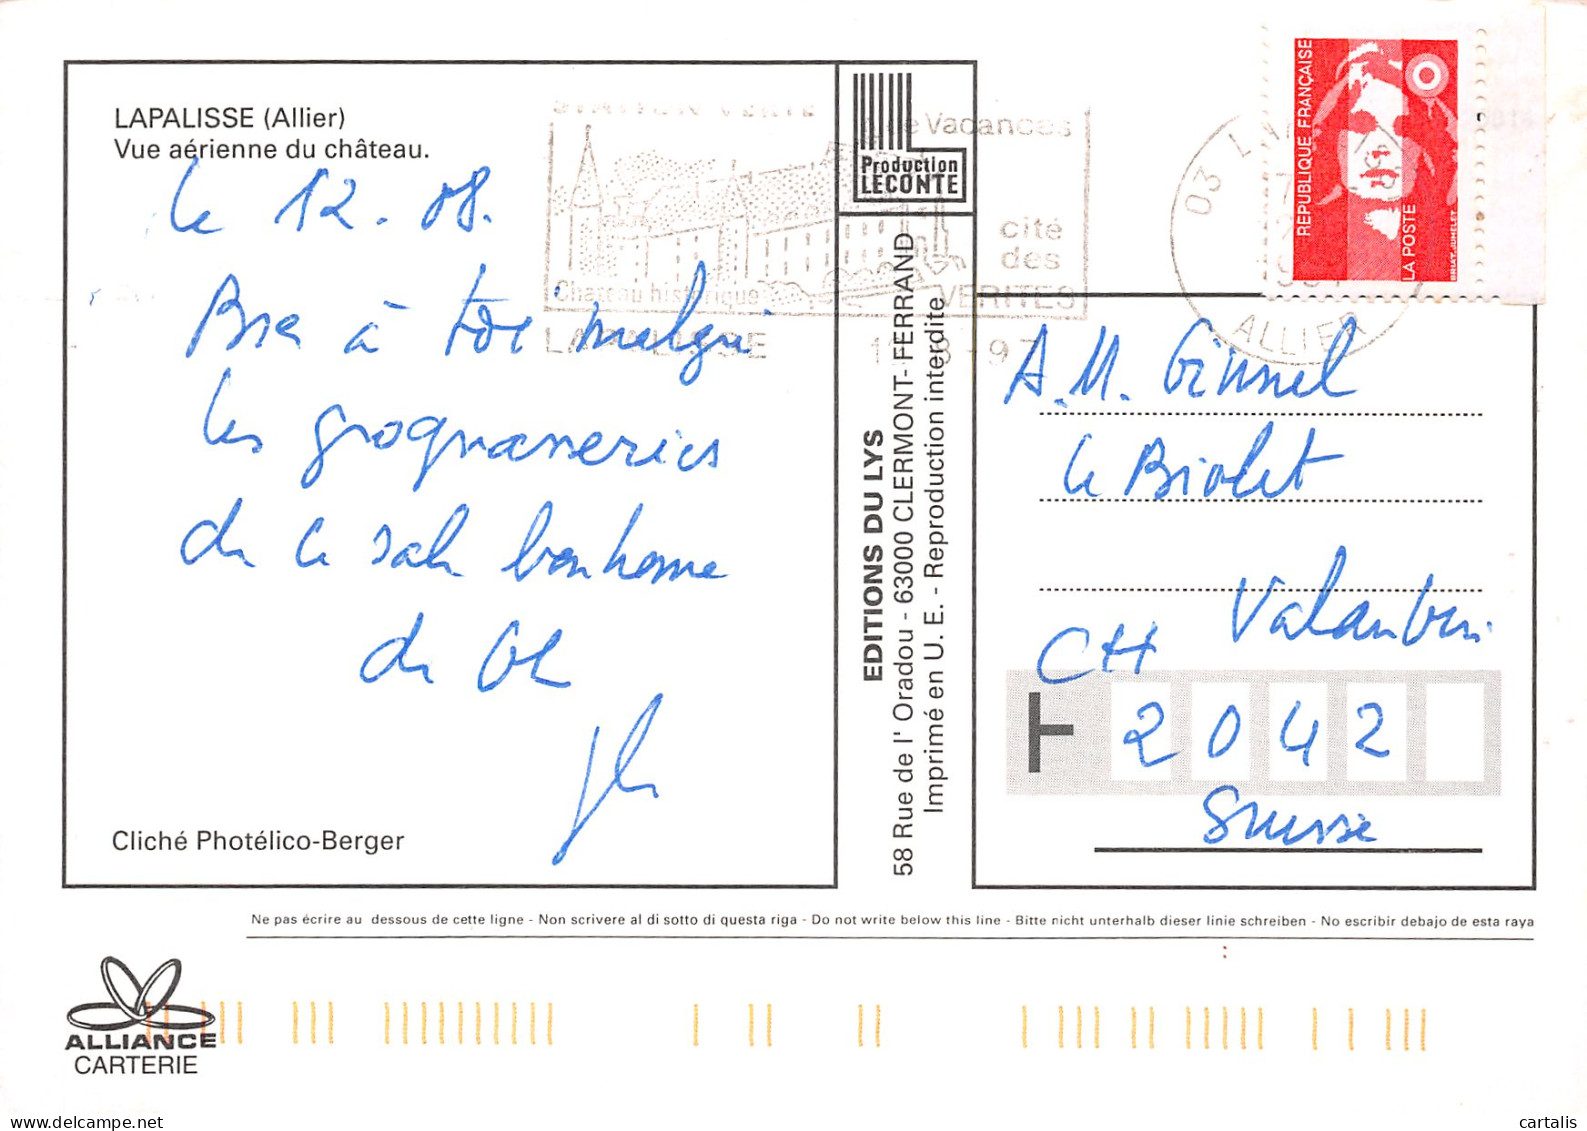 LAPALISSE (Allier)
Vue aérienne du château.
le 12.08.
à toi malgré
les grognasseries
de ce sale bonhomme
de
Cliché Photélico-Berger
STATION VERTE de Vacances
cité
des
VERITES
Château historique
LAPALISSE
Production
LECONTE
EDITIONS DU LYS
58 Rue de l' Oradou - 63000 CLERMONT-FERRAND
Imprimé en U. E. - Reproduction interdite
REPUBLIQUE FRANÇAISE
LA POSTE
BRIAT.JUMELET
03
ALLIER
A.M.
Le Biolet
Valambin
CH
2042
Suisse
Ne pas écrire au dessous de cette ligne - Non scrivere al di sotto di questa riga - Do not write below this line - Bitte nicht unterhalb dieser linie schreiben - No escribir debajo de esta raya
ALLIANCE
CARTERIE
cartalis
delcampe.net